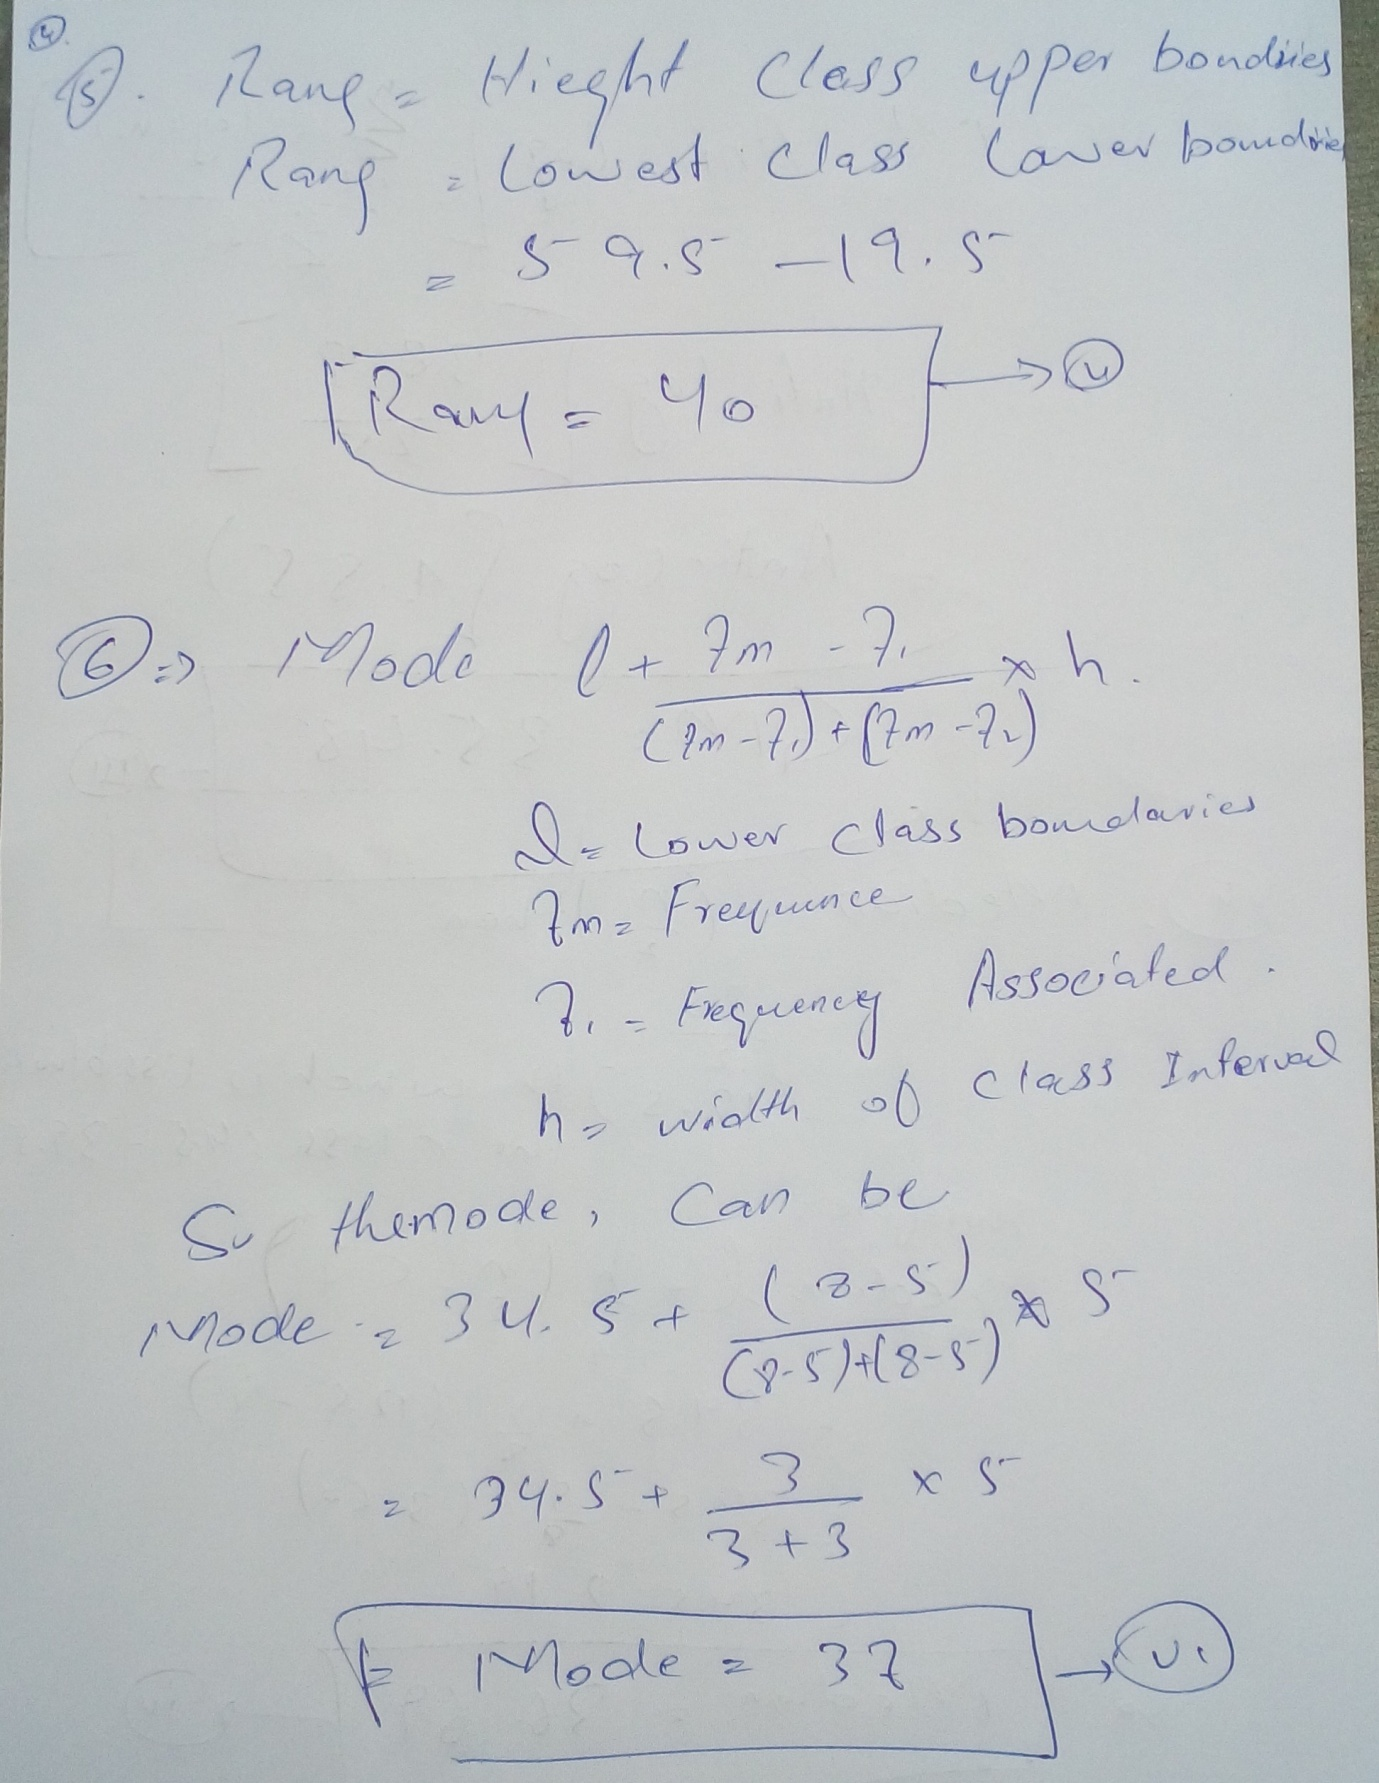 (4)
(5). Rang = Hieght Class upper bondries
Rang = Lowest Class Lower boundries
= 59.5 - 19.5
Rang = 40 → (V)
(6) => Mode l + fm - f1 / (fm - f1) + (fm - f2) × h.
l = Lower class boundaries
fm = Frequence
f1 = Frequency Associated.
h = width of class Interval
So themode, Can be
Mode = 34.5 + (8-5) / (8-5)+(8-5) × 5
= 34.5 + 3 / 3+3 × 5
= Mode = 37 → (VI)